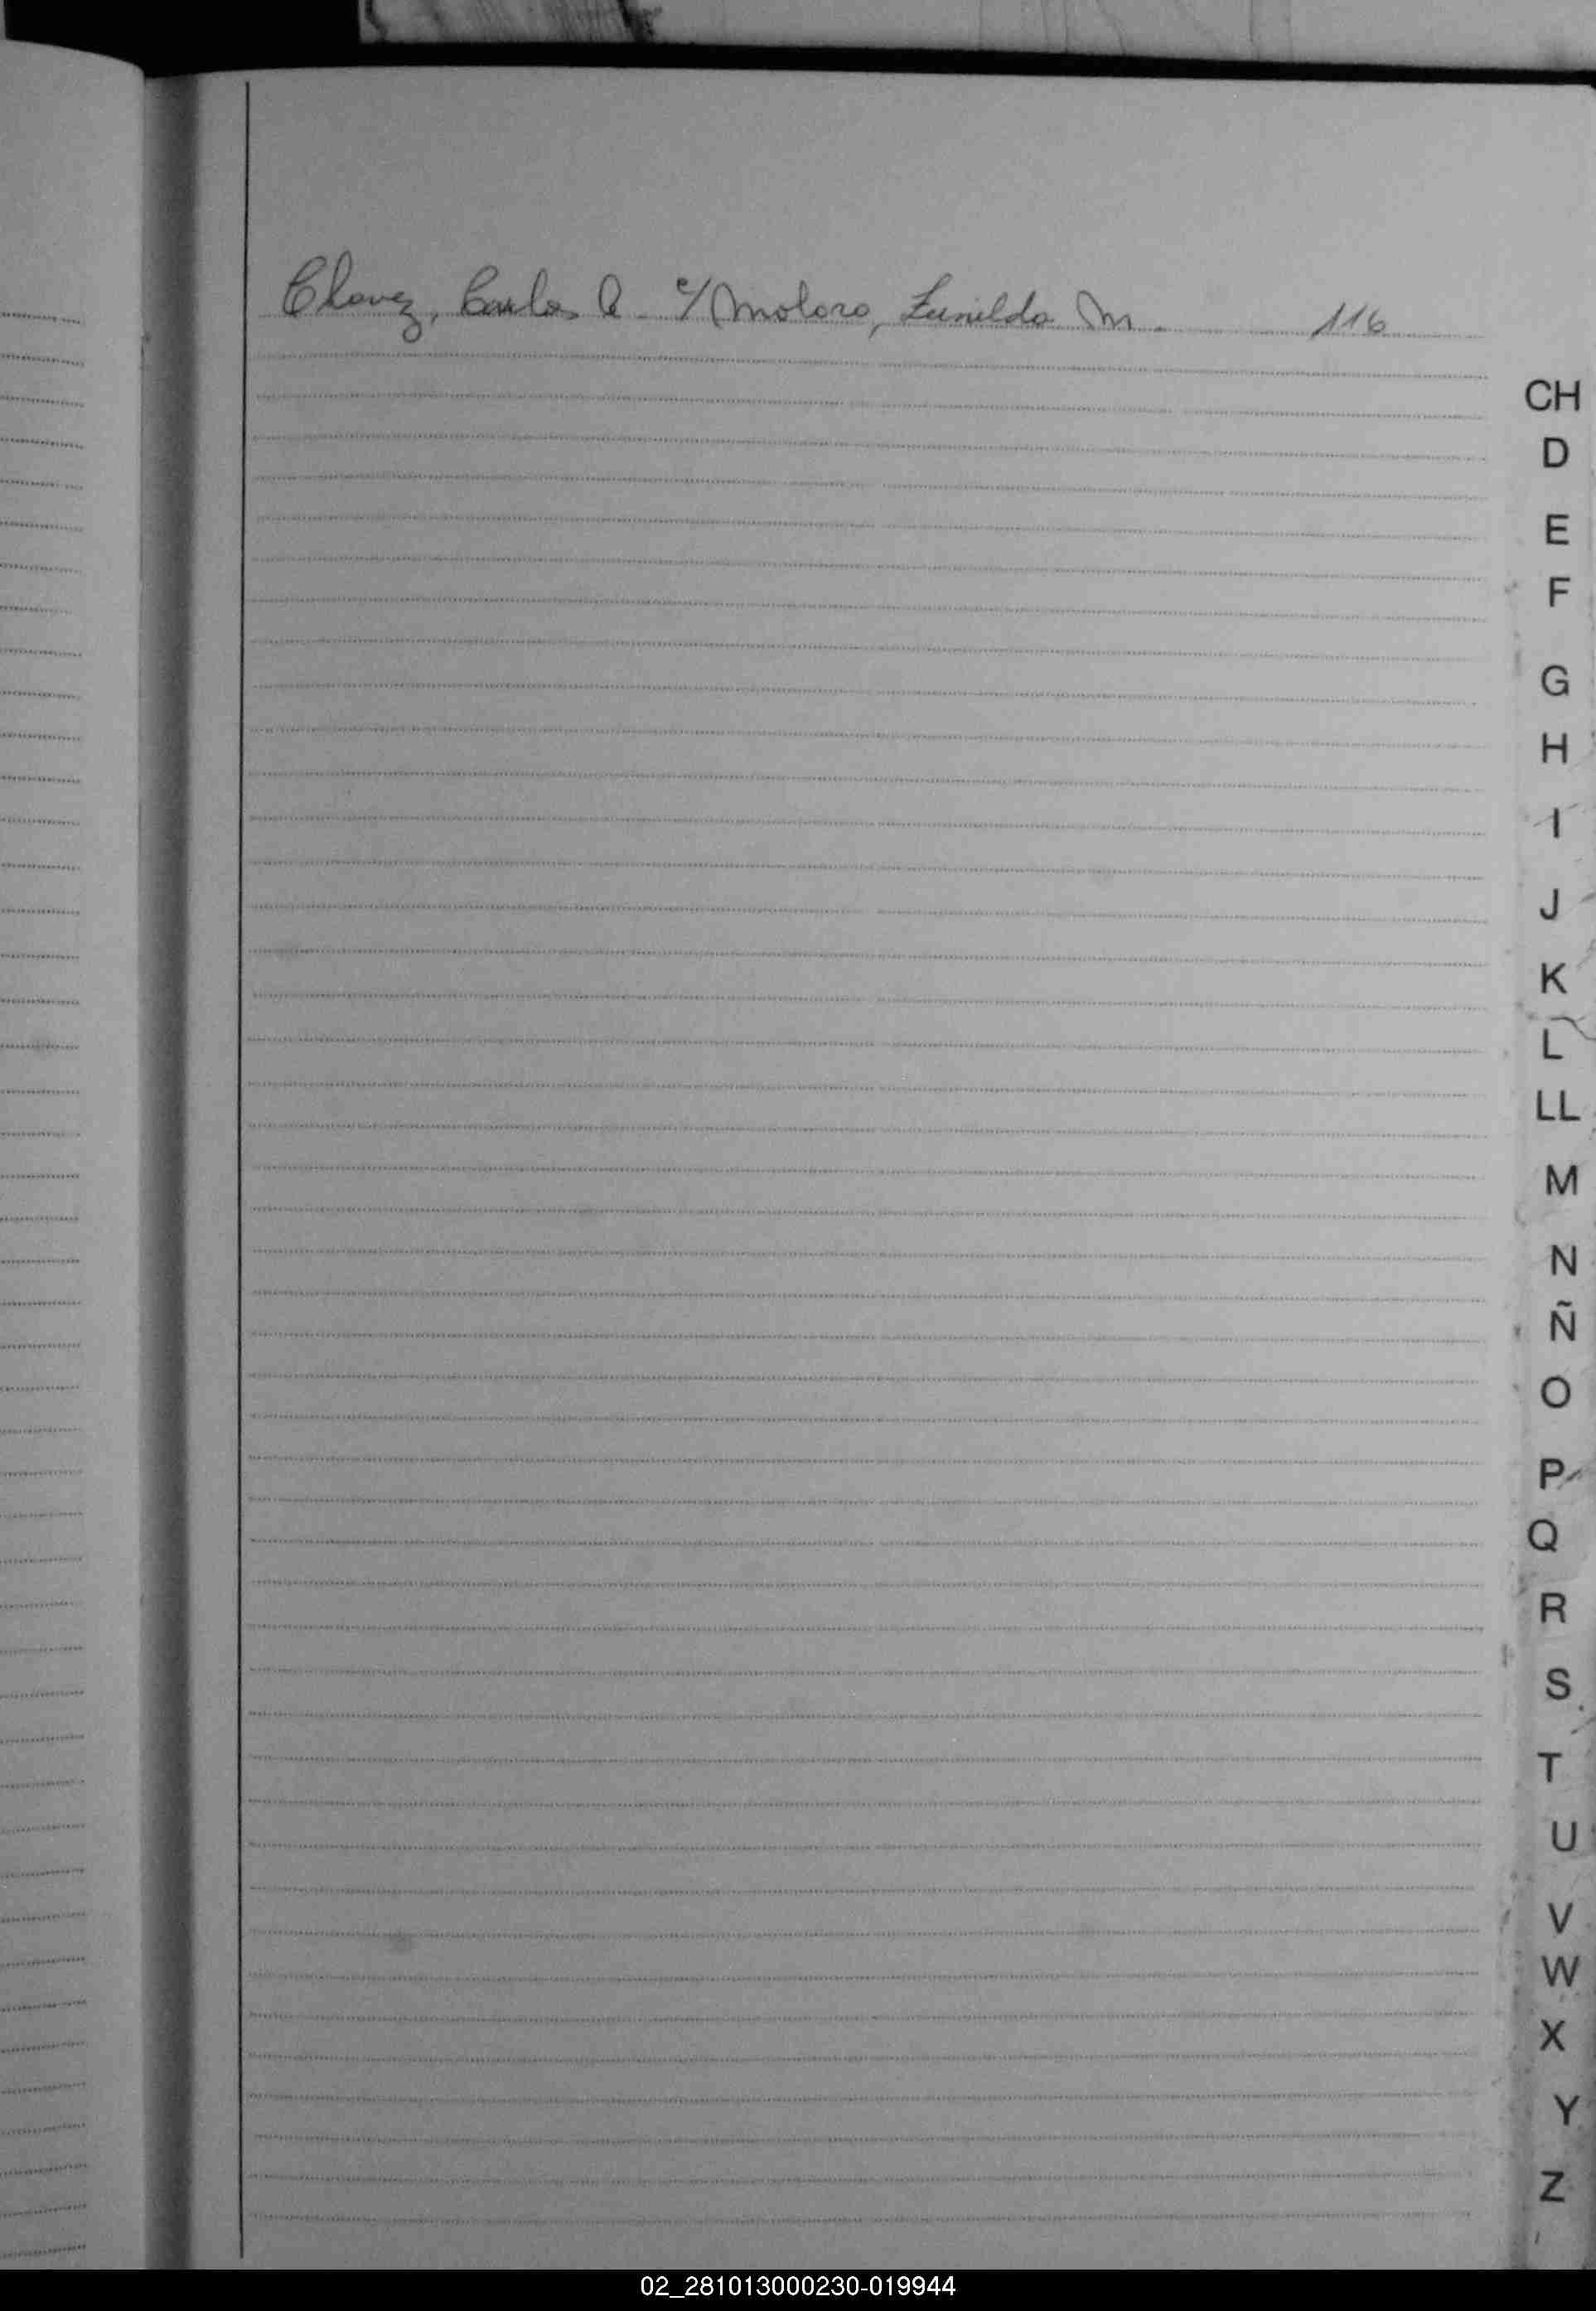 Chavez, Carlos A. c/ Moloro, Zunilda M. 116
CH
D
E
F
G
H
I
J
K
L
LL
M
N
Ñ
O
P
Q
R
S
T
U
V
W
X
Y
Z
02_281013000230-019944